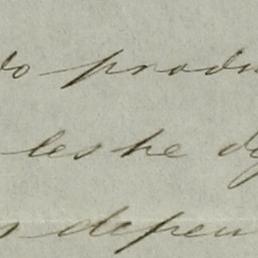 do produ
les he dy
s depen